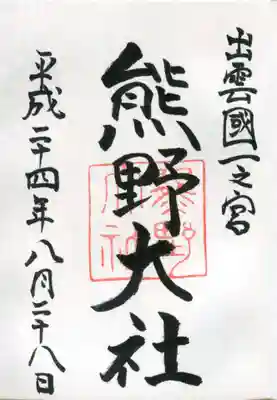 出雲國一之宮
熊野大社
平成二十四年八月二十八日
熊野大社